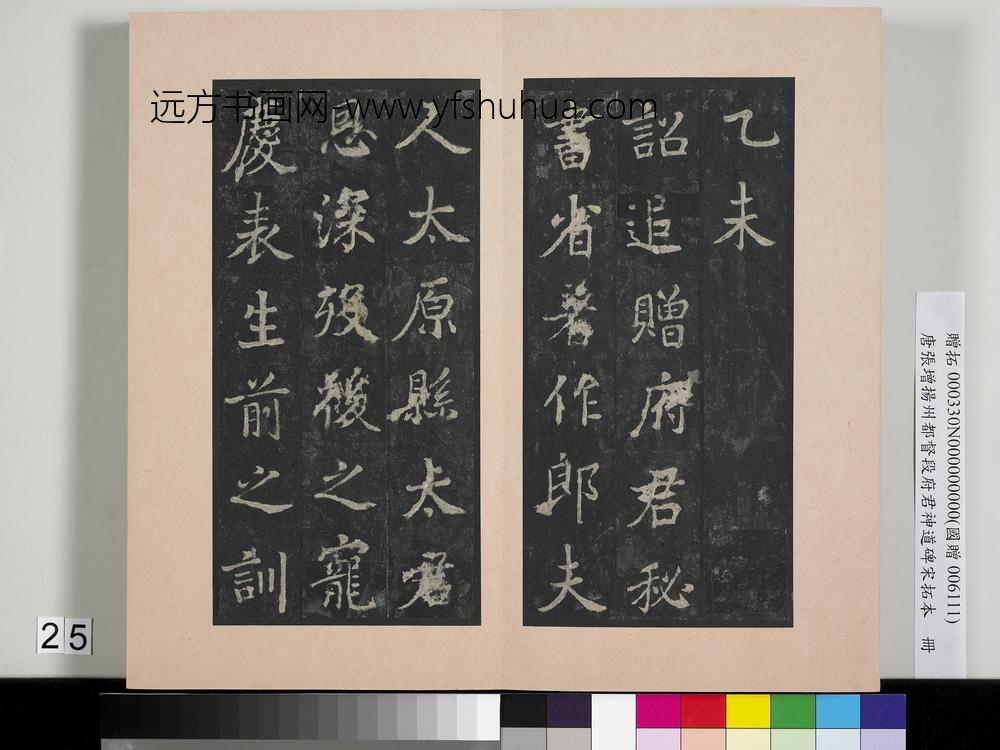 远方书画网 www.yfshuhua.com
乙未
詔追贈府君秘
書省著作郎夫
人太原縣太君
恩深歿後之寵
慶表生前之訓
贈拓 000330N000000000(國贈 006111)
唐張增揚州都督段府君神道碑宋拓本 冊
25